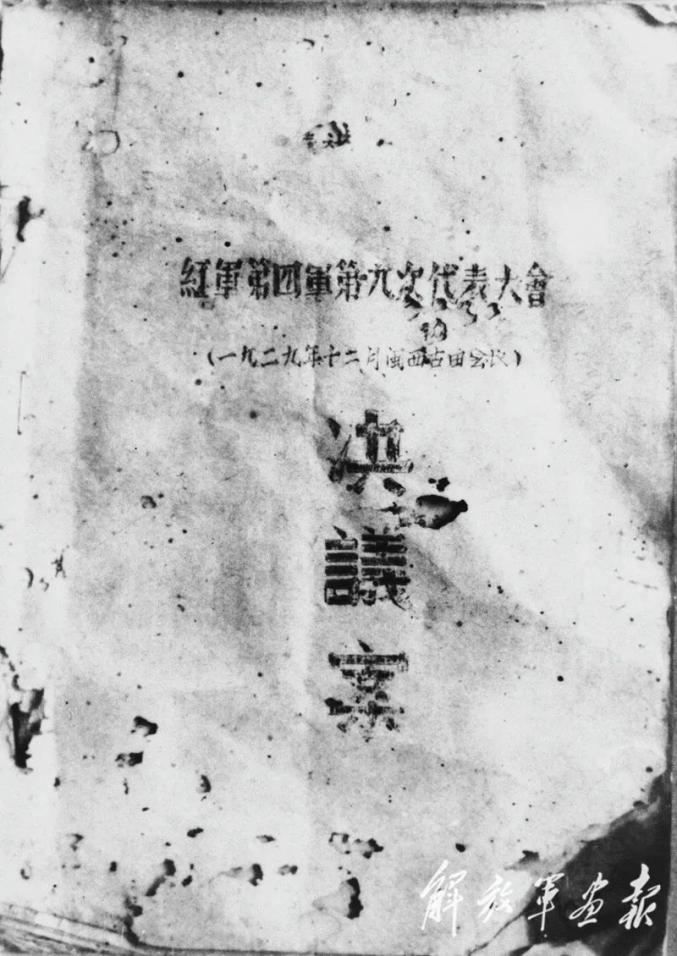 紅軍第四軍第九次代表大會
（一九二九年十二月闽西古田会议）
決
議
案
解放军画报